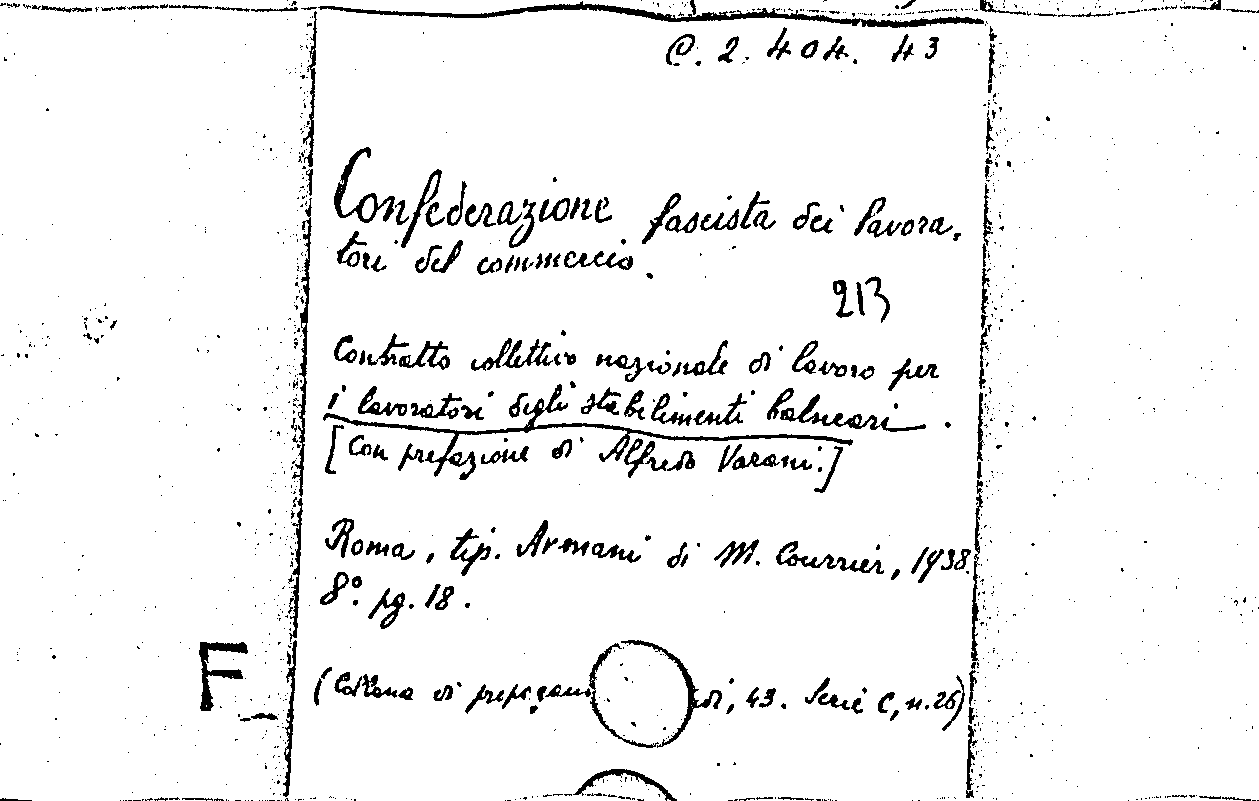 C. 2. 404. 43
Confederazione fascista dei lavora-
tori del commercio.
213
Contratto collettivo nazionale di lavoro per
i lavoratori degli stabilimenti balneari.
[Con prefazione di Alfredo Varani.]
Roma, tip. Armani di M. Courrier, 1938.
8°. pg. 18.
F
(Collana di di, 43. Serie C, n. 26)